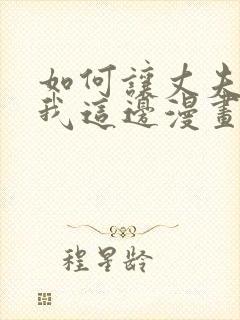 如何讓丈夫
我這邊漫畫
程星齡